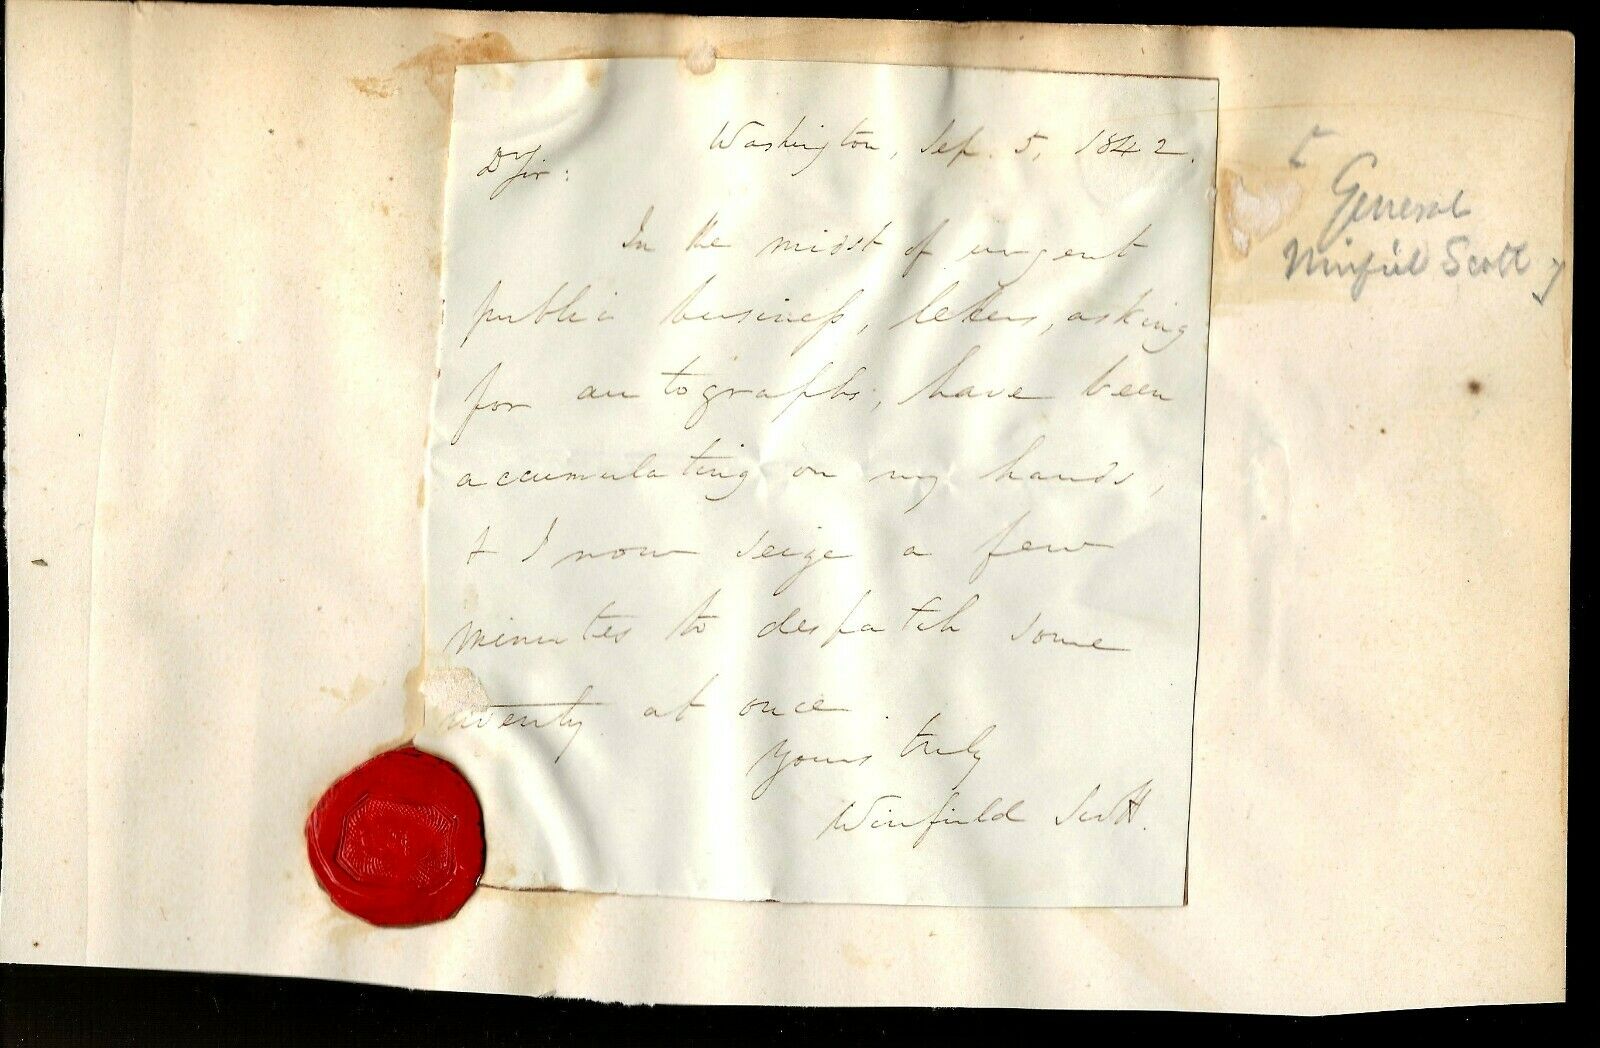 Washington, Sep. 5, 1842.
Dr Sir:
In the midst of urgent
public business, letters, asking
for autographs, have been
accumulating on my hands,
& I now seize a few
minutes to despatch some
twenty at once.
Yours truly
Winfield Scott.
General
Winfield Scott